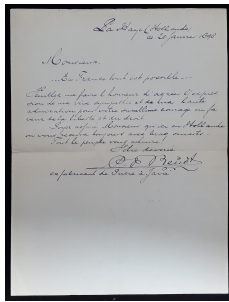 La Haye (Hollande
ce 20 Janvier 1898
Monsieur,
En France tout est possible...
Veuillez me faire l'honneur d'agréer l'expres
sion de ma vive sympathie et de ma haute
admiration pour votre courage en fa
veur de la liberté et du droit
Monsieur qu'en Hollande
on vous toujours avec bras ouverts.
Tout le peuple vous admire!
Votre dévoué